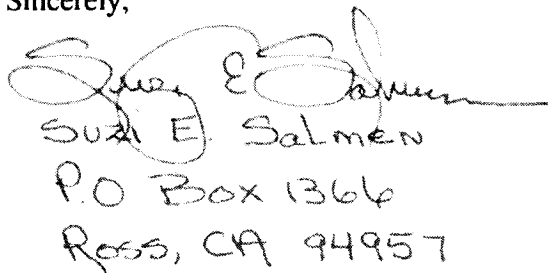 Sincerely,
Suzi E Salmen
SUZI E. SalmeN
P.O BOX 1366
ROSS, CA 94957